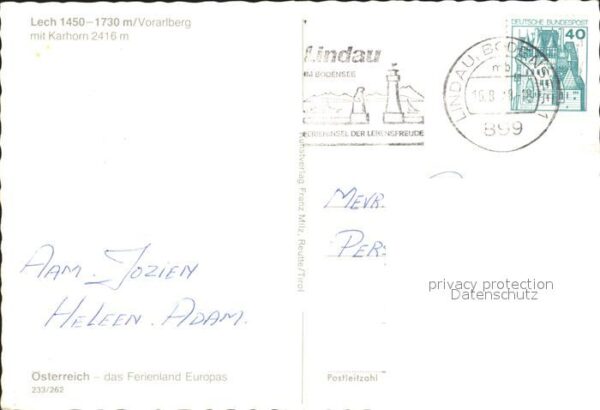 Lech 1450–1730 m/Vorarlberg
mit Karhorn 2416 m
Lindau
IM BODENSEE
FERIENINSEL DER LEBENSFREUDE
LINDAU, BODENSEE 1
mb
899
DEUTSCHE BUNDESPOST
40
Kunstverlag Franz Milz, Reutte/Tirol
MEVR.
PERS
AAM. JOZIEN
HELEEN. ADAM.
privacy protection
Datenschutz
Postleitzahl
Österreich – das Ferienland Europas
233/262